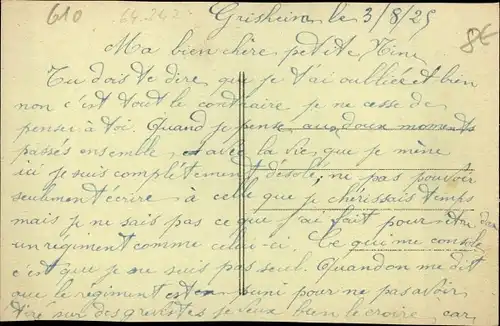 610
64.242
Griesheim le 3/8/25
8€
Ma bien chère petite Nine
Tu dois te dire que je t'ai oubliée et bien
non c'est tout le contraire je ne cesse de
penser à toi. Quand je pense aux doux moments
passés ensemble et avec la vie que je mène
ici je suis complètement désolé; ne pas pouvoir
seulement écrire à celle que je chérissais temps
mais je ne sais pas ce que j'ai fait pour être dans
un régiment comme celui-ci. Ce qui me console
c'est que je ne suis pas seul. Quand on me dit
que le régiment est puni pour ne pas avoir
tiré sur des grévistes je veux bien le croire car,